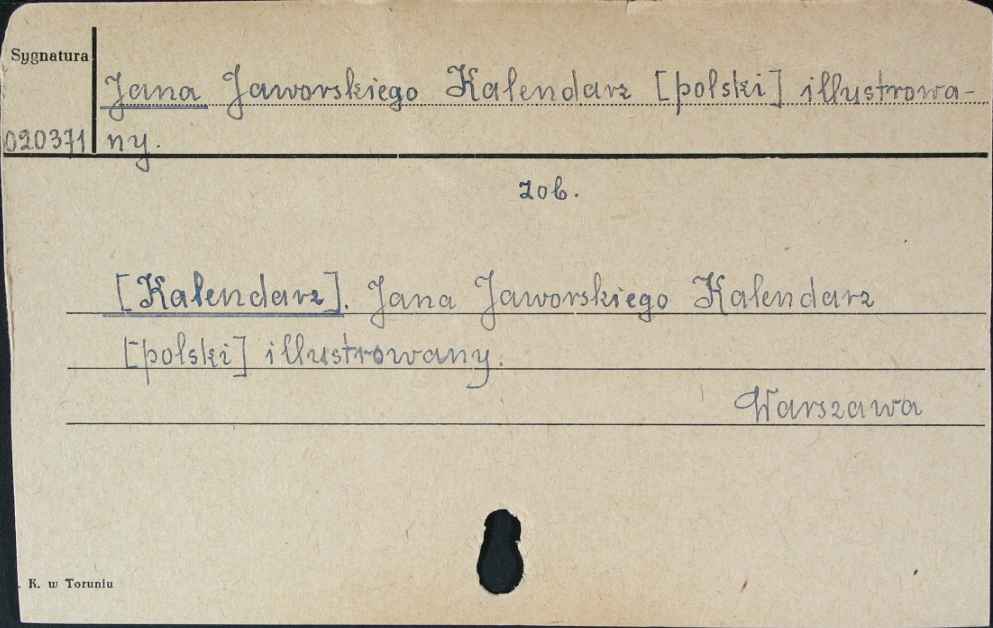 Sygnatura
Jana Jaworskiego Kalendarz [polski] illustrowa-
020371 ny.
zob.
[Kalendarz]. Jana Jaworskiego Kalendarz
[polski] illustrowany.
Warszawa
. K. w Toruniu